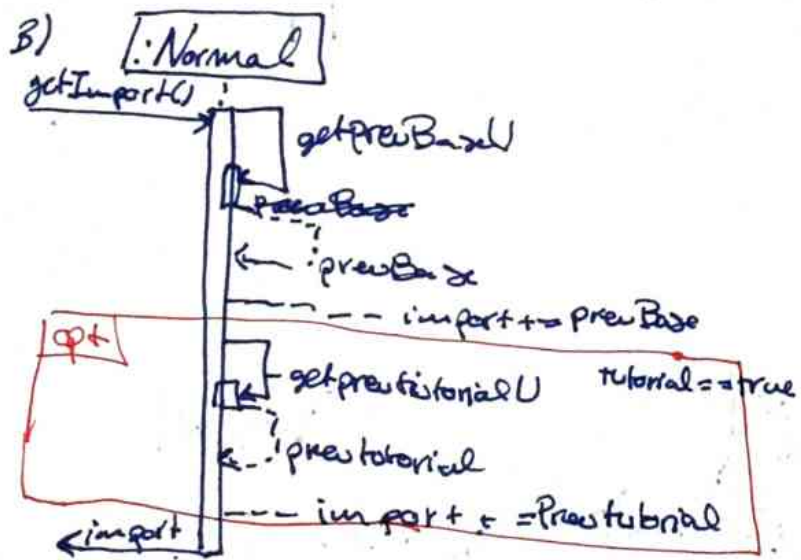 B)
:Normal
getImport()
getpreuBase()
preuBase
preuBase
import += preuBase
opt
getpreututorial()
tutorial==true
preututorial
import += Preututorial
import